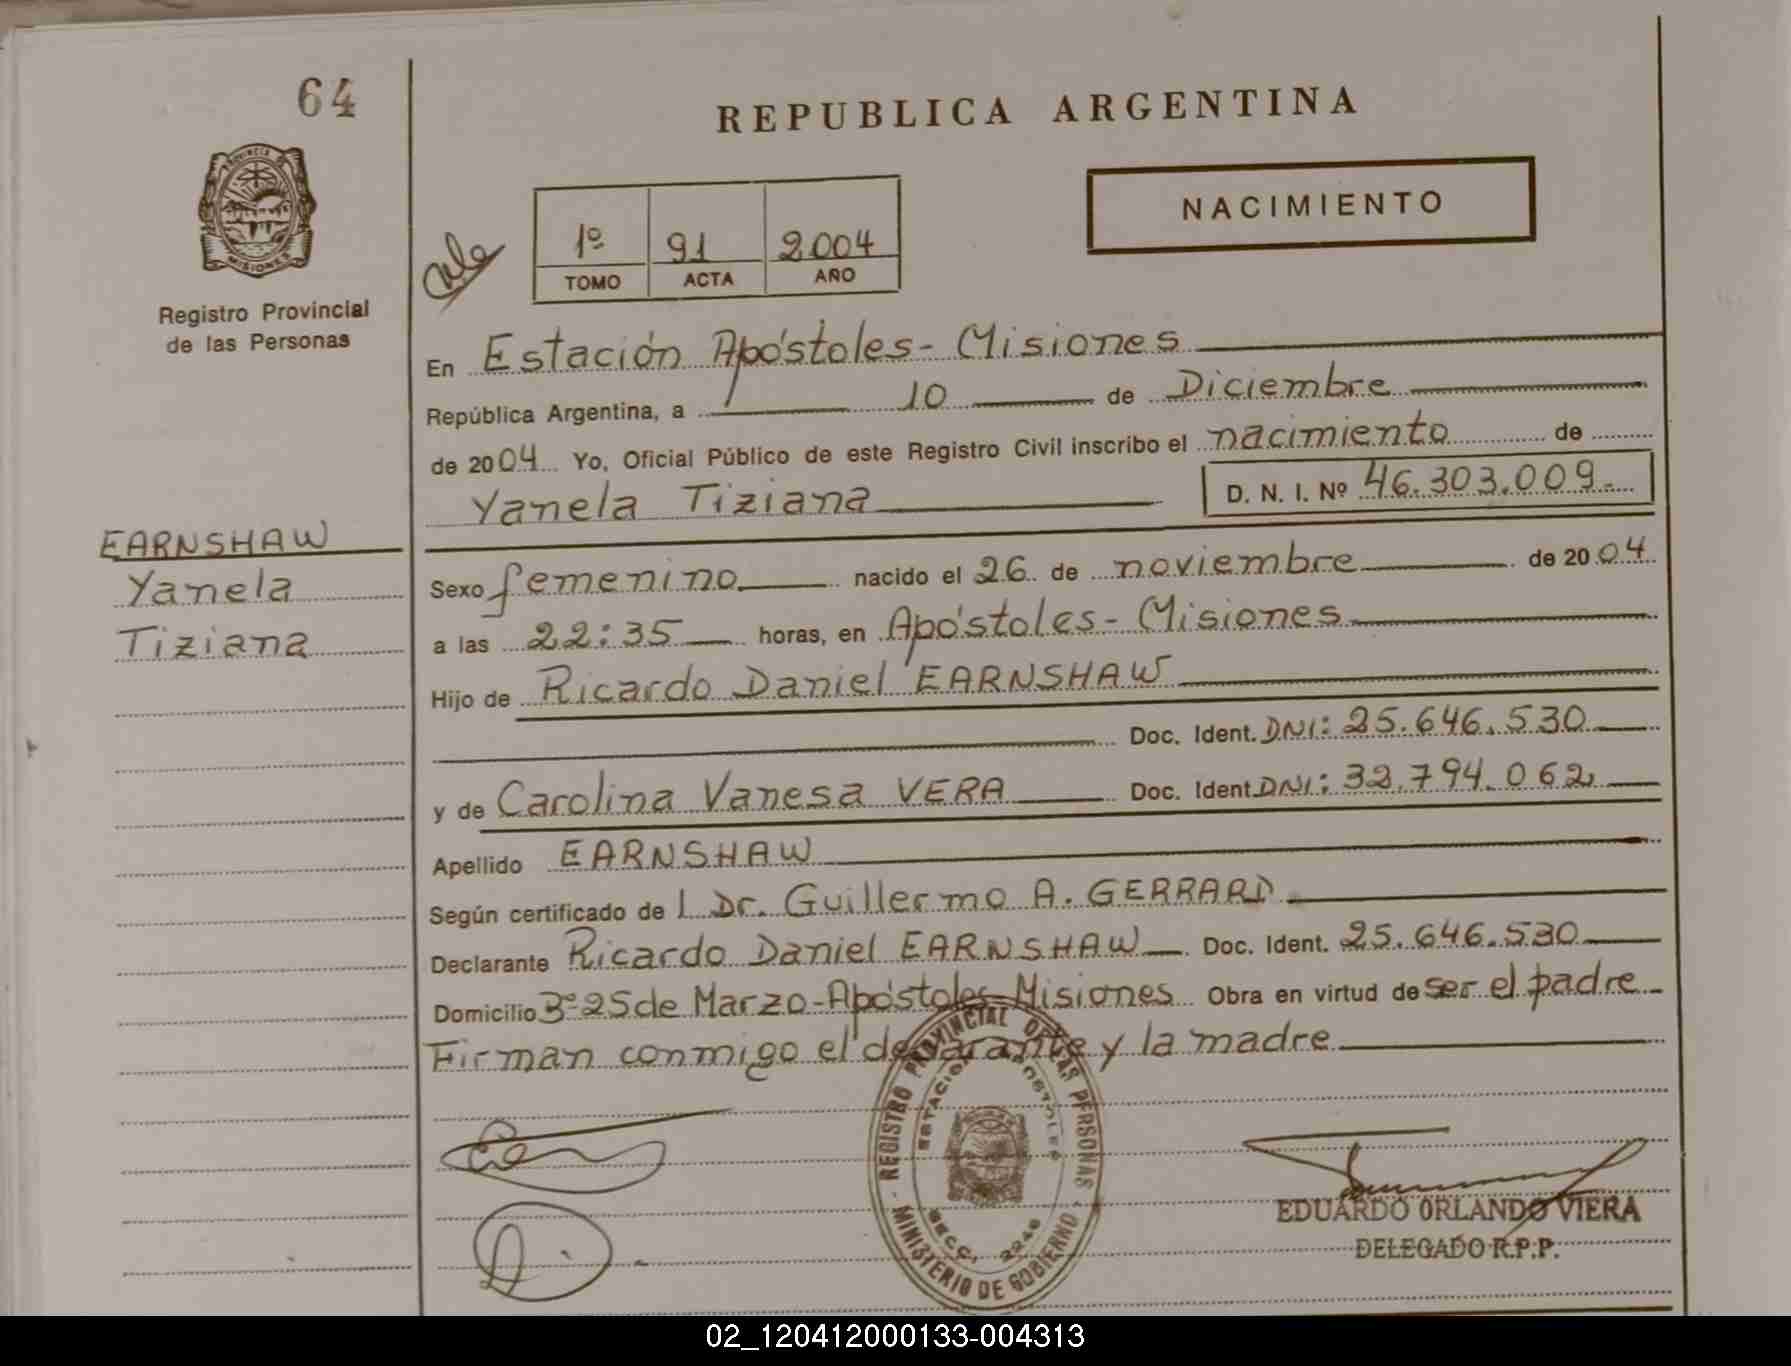 64
REPUBLICA ARGENTINA
PROVINCIA DE
MISIONES
Registro Provincial
de las Personas
NACIMIENTO
1º 91 2004
TOMO ACTA AÑO
En Estación Apóstoles- Misiones
República Argentina, a 10 de Diciembre
de 2004 Yo, Oficial Público de este Registro Civil inscribo el nacimiento de
Yanela Tiziana D. N. I. Nº 46.303.009.-
EARNSHAW
Yanela
Tiziana
Sexo femenino nacido el 26 de noviembre de 2004
a las 22:35 horas, en Apóstoles- Misiones
Hijo de Ricardo Daniel EARNSHAW
Doc. Ident. DNI: 25.646.530
y de Carolina Vanesa VERA Doc. Ident. DNI: 32.794.062
Apellido EARNSHAW
Según certificado de l Dr. Guillermo A. GERRARD
Declarante Ricardo Daniel EARNSHAW Doc. Ident. 25.646.530
Domicilio 3º-25 de Marzo-Apóstoles-Misiones Obra en virtud de ser el padre
Firman conmigo el declarante y la madre
REGISTRO PROVINCIAL DE LAS PERSONAS
MINISTERIO DE GOBIERNO
EDUARDO ORLANDO VIERA
DELEGADO R.P.P.
02_120412000133-004313